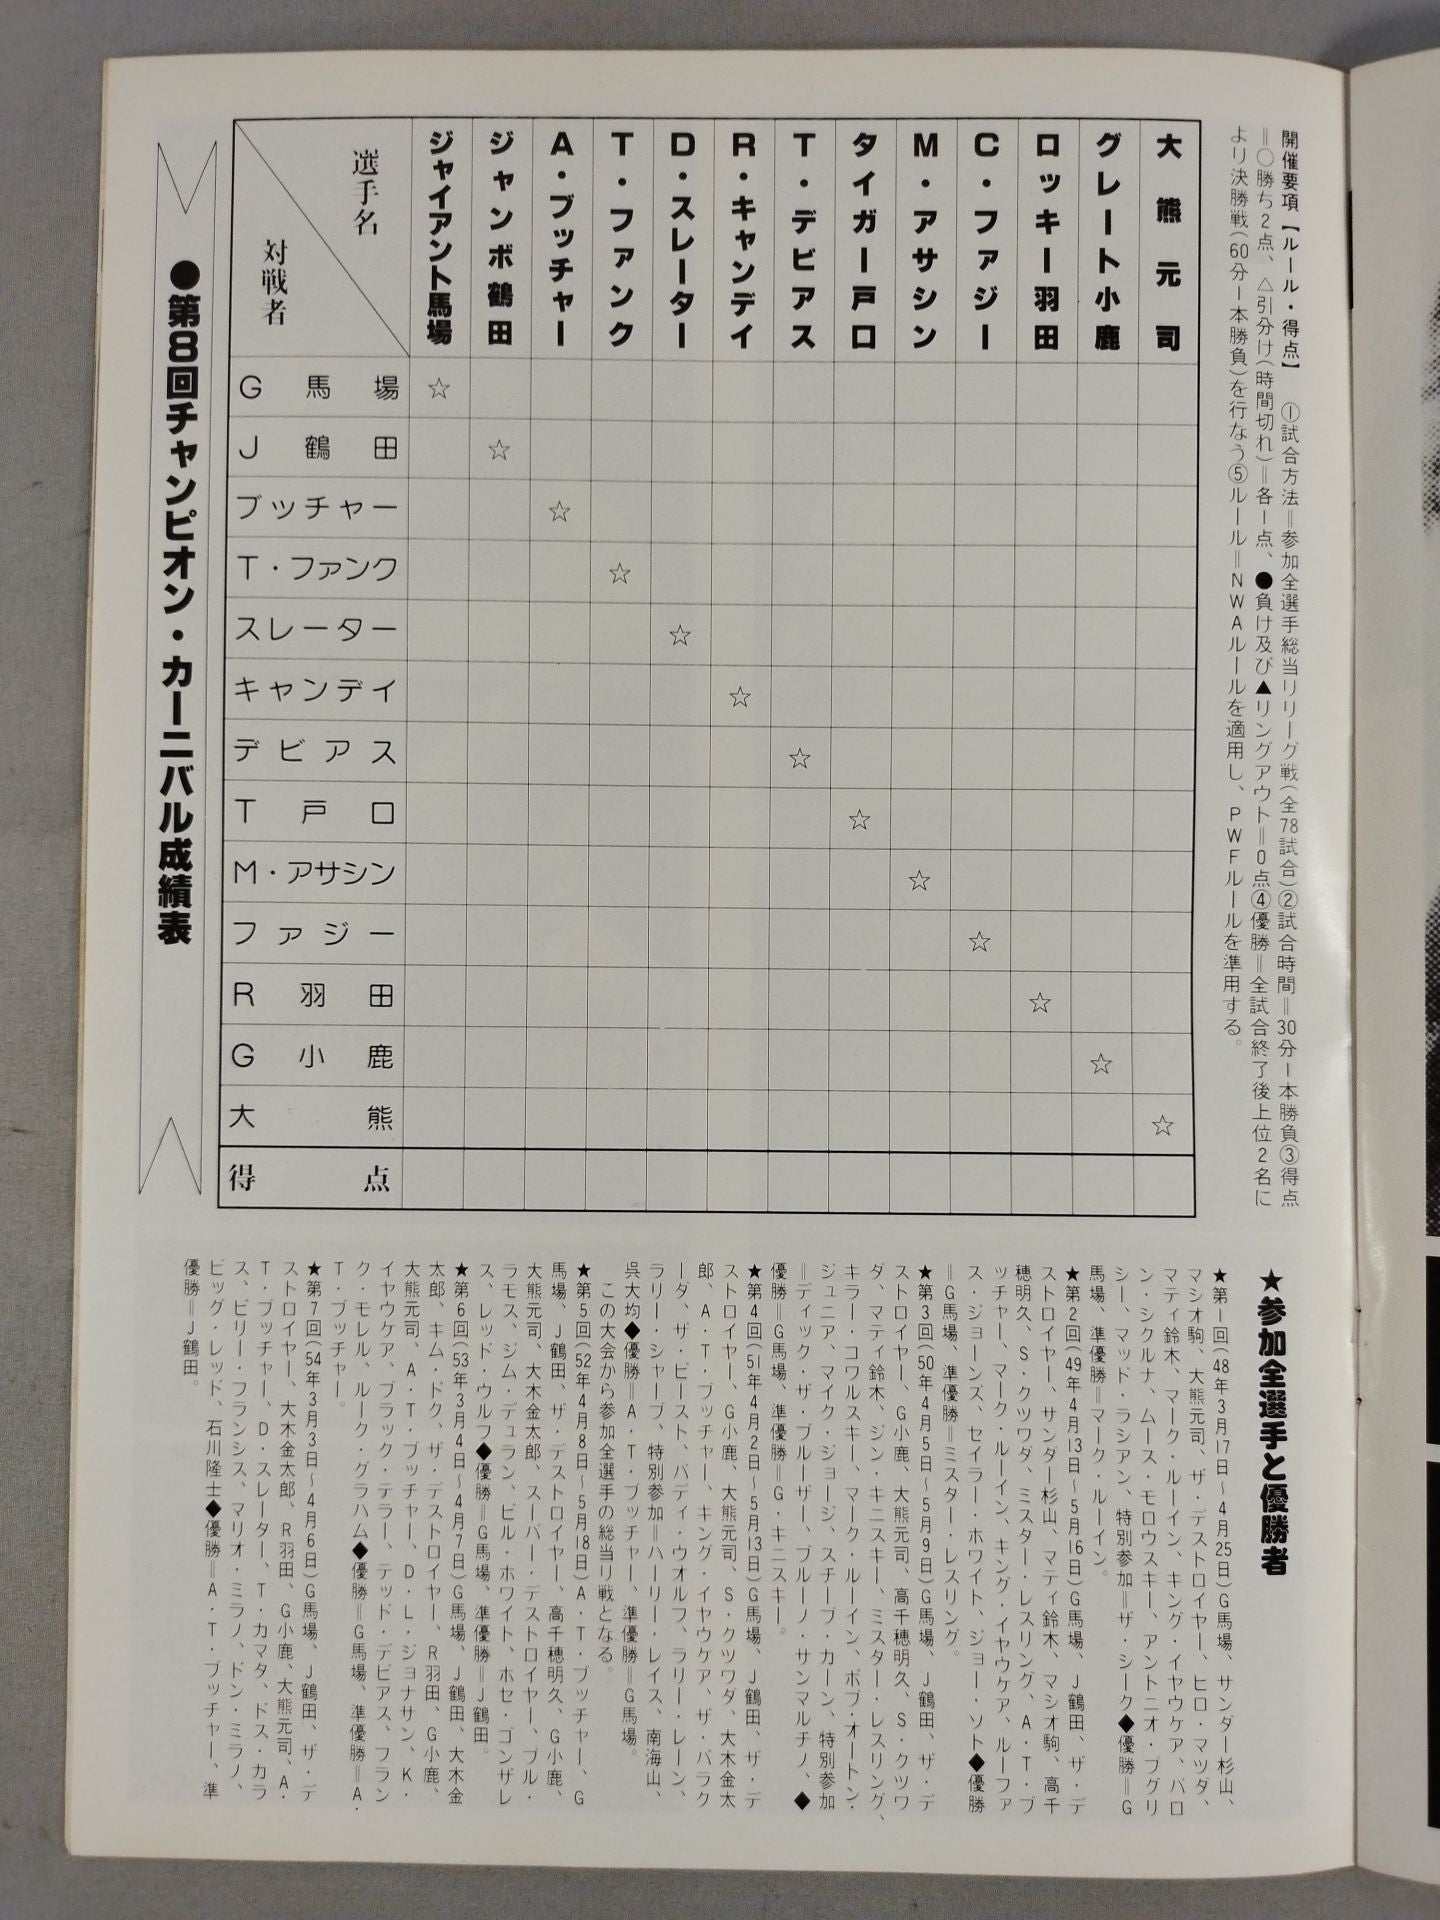 開催要項【ルール・得点】 ①試合方法＝参加全選手総当りリーグ戦（全78試合）②試合時間＝30分1本勝負③得点
＝○勝ち2点、△引分け（時間切れ）＝各1点、●負け及び▲リングアウト＝0点④優勝＝全試合終了後上位2名に
より決勝戦（60分1本勝負）を行なう⑤ルール＝NWAルールを適用し、PWFルールを準用する。
選手名
対戦者
ジャイアント馬場
ジャンボ鶴田
A・ブッチャー
T・ファンク
D・スレーター
R・キャンディ
T・デビアス
タイガー戸口
M・アサシン
C・ファジー
ロッキー羽田
グレート小鹿
大熊元司
G馬場 ☆
J鶴田 ☆
ブッチャー ☆
T・ファンク ☆
スレーター ☆
キャンディ ☆
デビアス ☆
T戸口 ☆
M・アサシン ☆
ファジー ☆
R羽田 ☆
G小鹿 ☆
大熊 ☆
得点
●第8回チャンピオン・カーニバル成績表
★参加全選手と優勝者
★第1回（48年3月17日～4月25日）G馬場、サンダー杉山、
マシオ駒、大熊元司、ザ・デストロイヤー、ヒロ・マツダ、
マティ鈴木、マーク・ルーイン、キング・イヤウケア、バロ
ン・シクルナ、ムース・モロウスキー、アントニオ・プグリ
シー、マッド・ラシアン、特別参加＝ザ・シーク◆優勝＝G
馬場、準優勝＝マーク・ルーイン。
★第2回（49年4月13日～5月16日）G馬場、J鶴田、ザ・デ
ストロイヤー、サンダー杉山、マティ鈴木、マシオ駒、高千
穂明久、S・クツワダ、ミスター・レスリング、A・T・ブ
ッチャー、マーク・ルーイン、キング・イヤウケア、ルーファ
ス・ジョーンズ、セイラー・ホワイト、ジョー・ソト◆優勝
＝G馬場、準優勝＝ミスター・レスリング。
★第3回（50年4月5日～5月9日）G馬場、J鶴田、ザ・デ
ストロイヤー、G小鹿、大熊元司、高千穂明久、S・クツワ
ダ、マティ鈴木、ジン・キニスキー、ミスター・レスリング、
キラー・コワルスキー、マーク・ルーイン、ボブ・オートン・
ジュニア、マイク・ジョージ、スチーブ・カーン、特別参加
＝ディック・ザ・ブルーザー、ブルーノ・サンマルチノ、◆
優勝＝G馬場、準優勝＝G・キニスキー。
★第4回（51年4月2日～5月13日）G馬場、J鶴田、ザ・デ
ストロイヤー、G小鹿、大熊元司、S・クツワダ、大木金太
郎、A・T・ブッチャー、キング・イヤウケア、ザ・バラク
ーダ、ザ・ビースト、バディ・ウオルフ、ラリー・レーン、
ラリー・シャープ、特別参加＝ハーリー・レイス、南海山、
呉大均◆優勝＝A・T・ブッチャー、準優勝＝G馬場。
この大会から参加全選手の総当り戦となる。
★第5回（52年4月8日～5月18日）A・T・ブッチャー、G
馬場、J鶴田、ザ・デストロイヤー、高千穂明久、G小鹿、
大熊元司、大木金太郎、スーパー・デストロイヤー、ブル・
ラモス、ジム・デュラン、ビル・ホワイト、ホセ・ゴンザレ
ス、レッド・ウルフ◆優勝＝G馬場、準優勝＝J鶴田。
★第6回（53年3月4日～4月7日）G馬場、J鶴田、大木金
太郎、キム・ドク、ザ・デストロイヤー、R羽田、G小鹿、
大熊元司、A・T・ブッチャー、D・L・ジョナサン、K・
イヤウケア、ブラック・テラー、テッド・デビアス、フラン
ク・モレル、ルーク・グラハム◆優勝＝G馬場、準優勝＝A・
T・ブッチャー。
★第7回（54年3月3日～4月6日）G馬場、J鶴田、ザ・デ
ストロイヤー、大木金太郎、R羽田、G小鹿、大熊元司、A・
T・ブッチャー、D・スレーター、T・カマタ、ドス・カラ
ス、ビリー・フランシス、マリオ・ミラノ、ドン・ミラノ、
ビッグ・レッド、石川隆士◆優勝＝A・T・ブッチャー、準
優勝＝J鶴田。